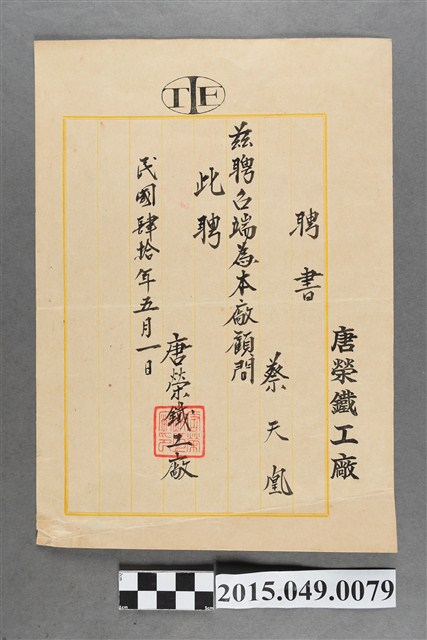 TIF
唐榮鐵工廠
聘書
蔡天凰
茲聘台端為本廠顧問
此聘
唐榮鐵工廠
民國肆拾年五月一日
2015.049.0079